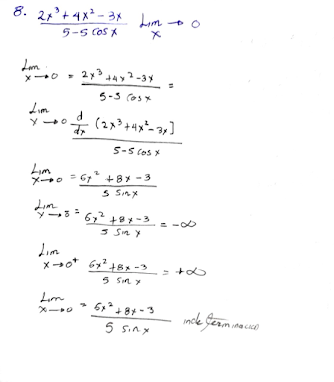 8. 2x³ + 4x² - 3x / 5 - 5 cos x Lim x → 0
Lim x→0 = 2x³ + 4x² - 3x / 5 - 5 cos x =
Lim x→0 d/dx (2x³ + 4x² - 3x] / 5 - 5 cos x
Lim x→0 = 6x² + 8x - 3 / 5 Sin x
Lim x→0⁻ = 6x² + 8x - 3 / 5 Sin x = -∞
Lim x→0⁺ 6x² + 8x - 3 / 5 Sin x = +∞
Lim x→0 = 6x² + 8x - 3 / 5 Sin x